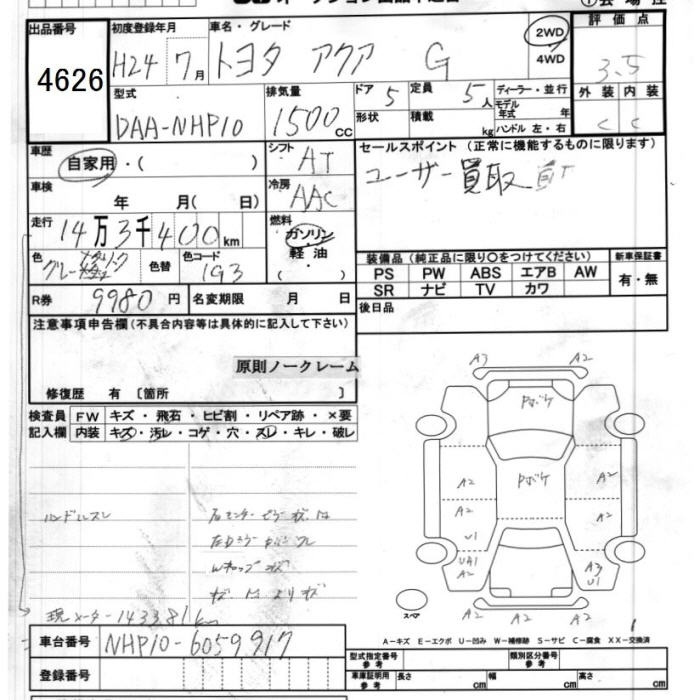 出品番号
4626
初度登録年月
H24 7月
車名・グレード
トヨタ アクア G
2WD
4WD
評価点
3.5
型式
DAA-NHP10
排気量
1500 cc
ドア 5
形状
定員 5人
積載 kg
ディーラー・並行
モデル年式 年
ハンドル 左・右
外装 内装
C C
車歴
自家用・( )
シフト
AT
セールスポイント (正常に機能するものに限ります)
ユーザー買取
車検
年 月( 日)
冷房
AAC
走行
14万3千400km
燃料
ガソリン
軽油
( )
色
グレー
色替
色コード
1G3
装備品 (純正品に限り○をつけてください)
新車保証書
PS PW ABS エアB AW
SR ナビ TV カワ
有・無
R券 9980円
名変期限 月 日
後日品
注意事項申告欄 (不具合内容等は具体的に記入して下さい)
原則ノークレーム
修復歴 有 〔箇所 〕
検査員 FW キズ・飛石・ヒビ割・リペア跡・×要
記入欄 内装 キズ・汚レ・コゲ・穴・スレ・キレ・破レ
ハンドルスレ
現メーター143381km
車台番号 NHP10-6059917
登録番号
A3 A2
A2 A2
Pボケ
Pボケ
A2 A2
A2 A2
U1
UA1
A2
A3
U1
A2 A2
スペア
A-キズ E-エクボ U-凹み W-補修跡 S-サビ C-腐食 XX-交換済
型式指定番号 参考
類別区分番号 参考
車庫証明用 参考
長さ cm 幅 cm 高さ cm